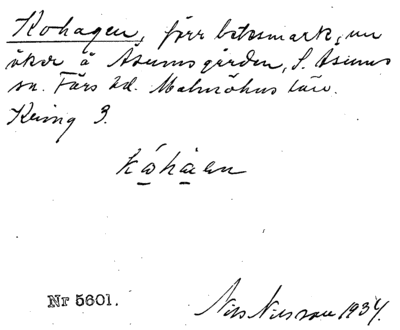 Kohagen, förr betesmark, nu
åker å Åsumsgården, S. Åsums
sn. Färs hd. Malmöhus län.
Kring 3.
kåhåen
Nr 5601.
Nils Nilsson 1934.